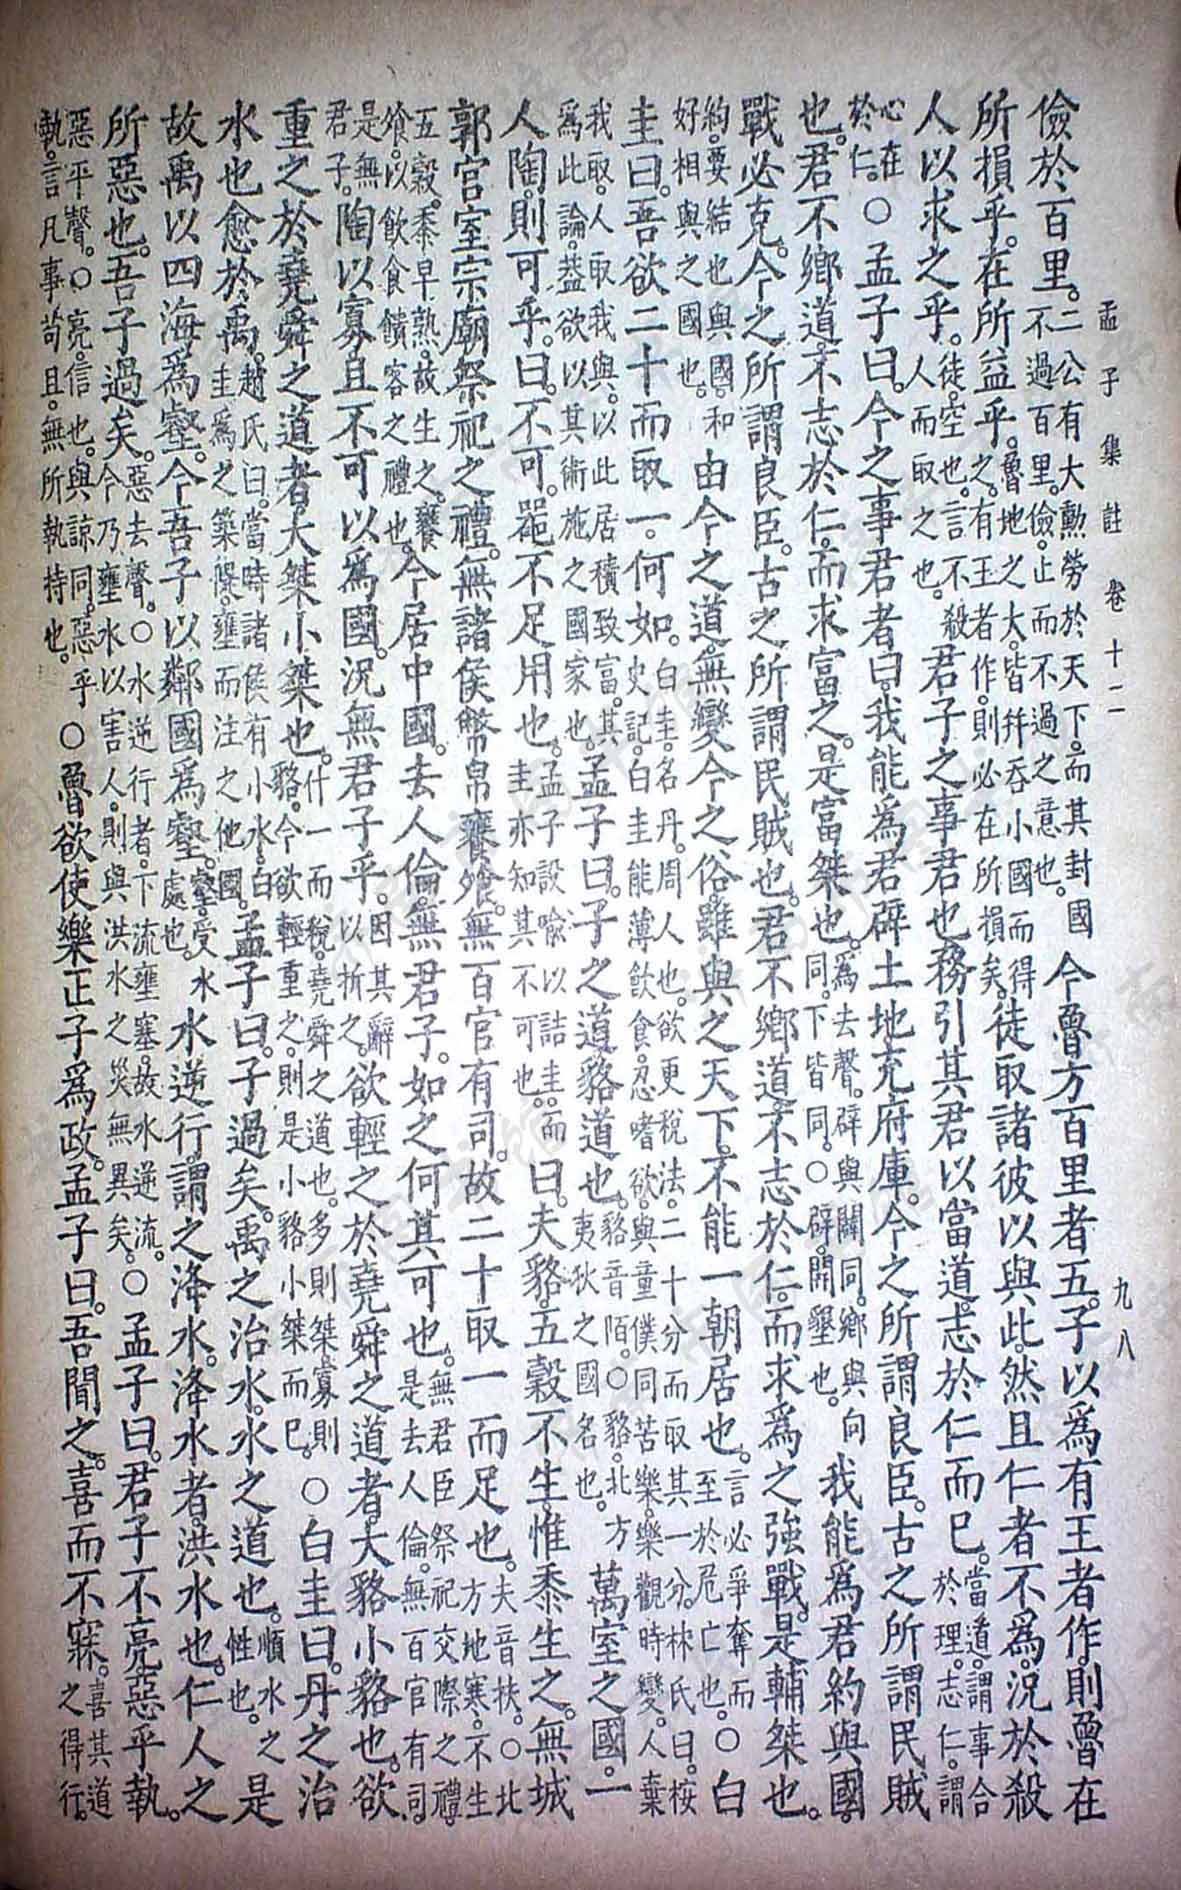 孟子集註 卷十二 九八
儉於百里。二公有大勳勞於天下。而其封國不過百里。儉。止而不過之意也。今魯方百里者五。子以爲有王者作。則魯在
所損乎。在所益乎。魯地之大。皆幷吞小國而得之。有王者作。則必在所損矣。徒取諸彼以與此。然且仁者不爲。況於殺
人以求之乎。徒。空也。言不殺人而取之也。君子之事君也。務引其君以當道。志於仁而已。當道。謂事合於理。志仁。謂
心在於仁。○孟子曰。今之事君者曰。我能爲君辟土地。充府庫。今之所謂良臣。古之所謂民賊
也。君不鄉道。不志於仁。而求富之。是富桀也。爲去聲。辟與闢同。鄉與向同。下皆同。○辟。開墾也。我能爲君約與國。
戰必克。今之所謂良臣。古之所謂民賊也。君不鄉道。不志於仁。而求爲之強戰。是輔桀也。
約。要結也。與國。和好相與之國也。由今之道。無變今之俗。雖與之天下。不能一朝居也。言必爭奪而至於危亡也。○白
圭曰。吾欲二十而取一。何如。白圭。名丹。周人也。欲更稅法。二十分而取其一分。林氏曰。桉史記。白圭能薄飲食。忍嗜欲。與童僕同苦樂。樂觀時變。人棄
我取。人取我與。以此居積致富。其爲此論。蓋欲以其術施之國家也。孟子曰。子之道。貉道也。貉音陌。○貉。北方夷狄之國名也。萬室之國。一
人陶。則可乎。曰。不可。器不足用也。孟子設喻以詰圭。而圭亦知其不可也。曰。夫貉。五穀不生。惟黍生之。無城
郭宮室宗廟祭祀之禮。無諸侯幣帛饔飧。無百官有司。故二十取一而足也。夫音扶。○北方地寒。不生
五穀。黍早熟。故生之。饔飧。以飲食饋客之禮也。今居中國。去人倫。無君子。如之何其可也。無君臣祭祀交際之禮。是去人倫。無百官有司。
是無君子。陶以寡。且不可以爲國。況無君子乎。因其辭以折之。欲輕之於堯舜之道者。大貉小貉也。欲
重之於堯舜之道者。大桀小桀也。什一而稅。堯舜之道也。多則桀。寡則貉。今欲輕重之。則是小貉小桀而已。○白圭曰。丹之治
水也愈於禹。趙氏曰。當時諸侯有小水。白圭爲之築隄。壅而注之他國。孟子曰。子過矣。禹之治水。水之道也。順水之性也。是
故禹以四海爲壑。今吾子以鄰國爲壑。壑。受水處也。水逆行。謂之洚水。洚水者。洪水也。仁人之
所惡也。吾子過矣。惡去聲。○水逆行者。下流壅塞。故水逆流。今乃壅水以害人。則與洪水之災無異矣。○孟子曰。君子不亮。惡乎執。
惡平聲。○亮。信也。與諒同。惡乎執。言凡事苟且。無所執持也。○魯欲使樂正子爲政。孟子曰。吾聞之。喜而不寐。喜其道之得行。